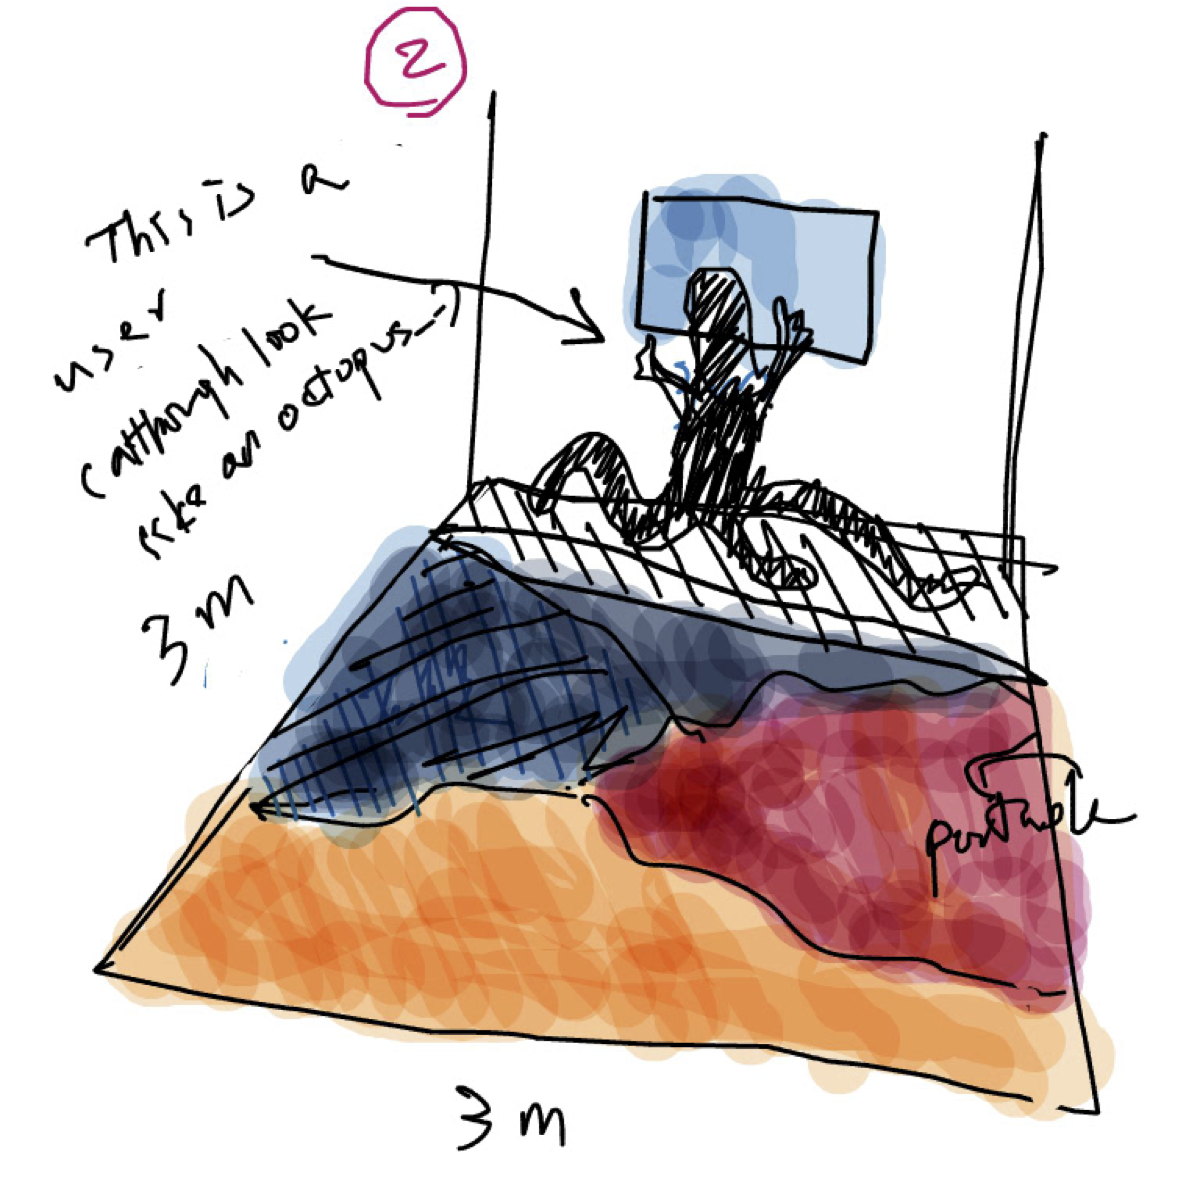 2
This is a
user
(although look
like an octopus--)
3 m
portable
3 m